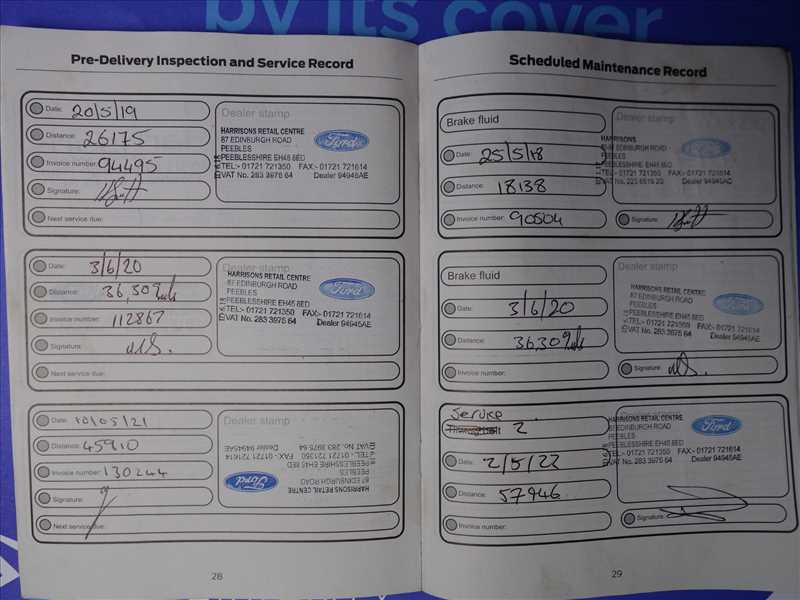 by its cover
Pre-Delivery Inspection and Service Record
Date: 20/5/19
Distance: 26175
Invoice number: 94495
Signature:
Next service due:
Dealer stamp
HARRISONS RETAIL CENTRE
87 EDINBURGH ROAD
PEEBLES
PEEBLESSHIRE EH45 8ED
TEL:- 01721 721350 FAX:- 01721 721614
VAT No. 283 3975 64 Dealer 94945AE
Ford
Date: 3/6/20
Distance: 36,309
Invoice number: 112867
Signature:
Next service due:
Dealer stamp
HARRISONS RETAIL CENTRE
87 EDINBURGH ROAD
PEEBLES
PEEBLESSHIRE EH45 8ED
TEL:- 01721 721350 FAX:- 01721 721614
VAT No. 283 3975 64 Dealer 94945AE
Ford
Date: 10/05/21
Distance: 45910
Invoice number: 130244
Signature:
Next service due:
Dealer stamp
HARRISONS RETAIL CENTRE
87 EDINBURGH ROAD
PEEBLES
PEEBLESSHIRE EH45 8ED
TEL:- 01721 721350 FAX:- 01721 721614
VAT No. 283 3975 64 Dealer 94945AE
Ford
28
Scheduled Maintenance Record
Brake fluid
Date: 25/5/18
Distance: 18138
Invoice number: 90504
Signature:
Dealer stamp
HARRISONS
EDINBURGH ROAD
PEEBLES
PEEBLESSHIRE EH45 8ED
TEL:- 01721 721350 FAX:- 01721 721614
VAT No. Dealer 94945AE
Ford
Brake fluid
Date: 3/6/20
Distance: 36309
Invoice number:
Signature:
Dealer stamp
HARRISONS RETAIL CENTRE
87 EDINBURGH ROAD
PEEBLES
PEEBLESSHIRE EH45 8ED
TEL:- 01721 721350 FAX:- 01721 721614
VAT No. 283 3975 64 Dealer 94945AE
Ford
Service
2
Date: 2/5/22
Distance: 57946
Invoice number:
Signature:
Dealer stamp
HARRISONS RETAIL CENTRE
87 EDINBURGH ROAD
PEEBLES
PEEBLESSHIRE EH45 8ED
TEL:- 01721 721350 FAX:- 01721 721614
VAT No. 283 3975 64 Dealer 94945AE
Ford
29